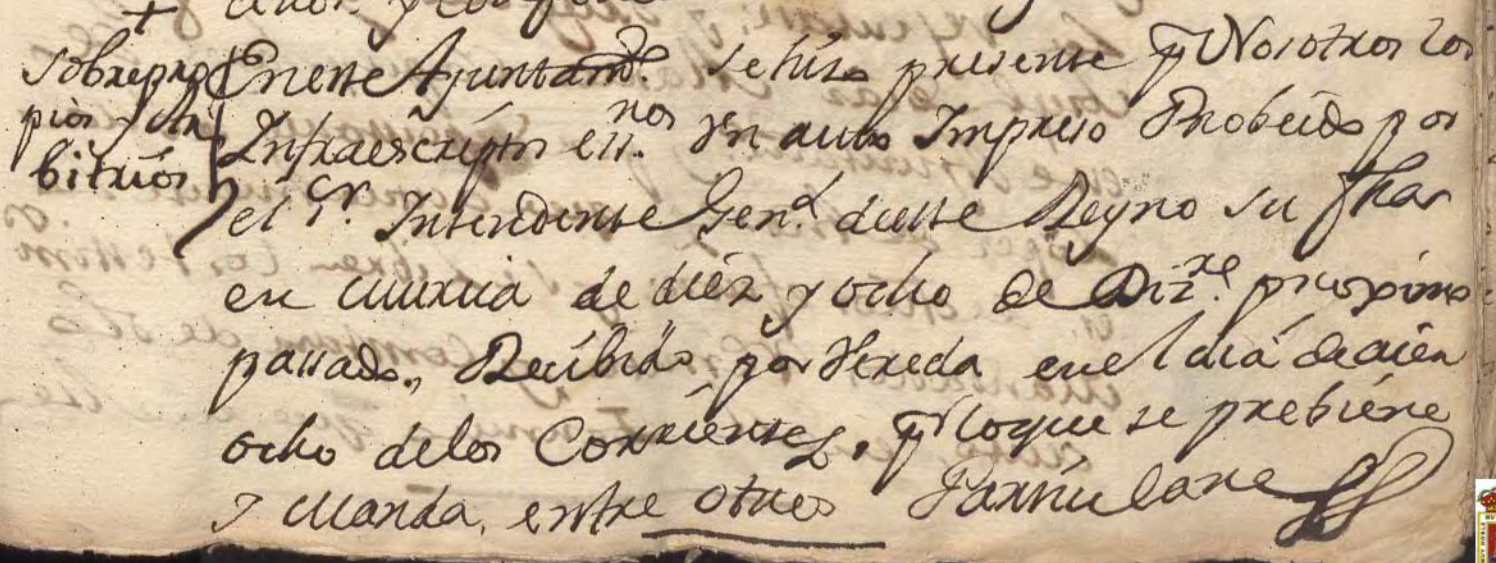 Sobre pro
pios y Ar
bitrios
En este Ayuntam.to se hizo presente pr Nosotros los
Infraescriptos ess.nos Un auto Impreso Probeido por
el Sr. Intendente Gen.l deeste Reyno su fhar
en Murcia de diez y ocho de Diz.re proximo
passado,, Recibido por Vereda en el dia de diez
ocho delos Corrientes, pr loque se prebiene
y Manda, entre otros Particulare